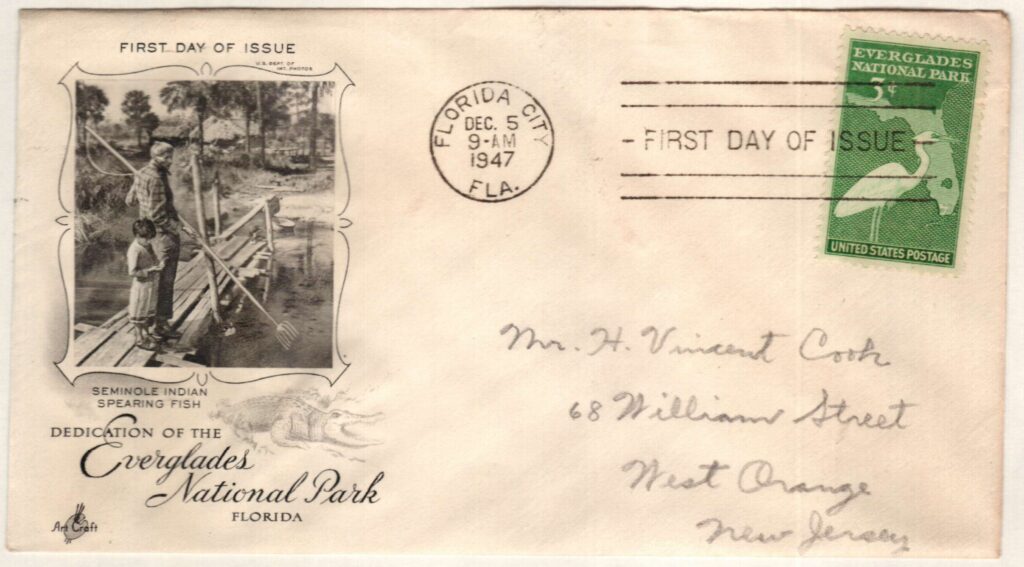 FIRST DAY OF ISSUE
U.S. DEPT. OF
INT. PHOTOS
SEMINOLE INDIAN
SPEARING FISH
DEDICATION OF THE
Everglades
National Park
FLORIDA
Art Craft
FLORIDA CITY
DEC. 5
9-AM
1947
FLA.
FIRST DAY OF ISSUE
EVERGLADES
NATIONAL PARK
3¢
UNITED STATES POSTAGE
Mr. H. Vincent Cook
68 William Street
West Orange
New Jersey